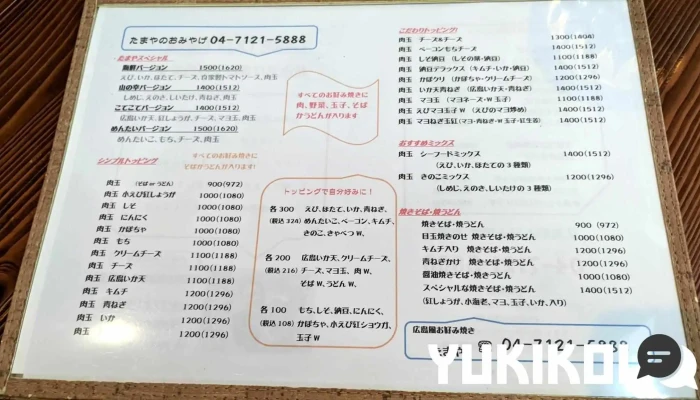 たまやのおみやげ 04-7121-5888
たまやスペシャル
海鮮バージョン 1500(1620)
えび、いか、ほたて、チーズ、自家製トマトソース、肉玉
山の幸バージョン 1400(1512)
しめじ、えのき、しいたけ、青ねぎ、肉玉
こてこてバージョン 1400(1512)
広島いか天、紅しょうが、チーズ、マヨ玉、肉玉
めんたいバージョン 1500(1620)
めんたいこ、もち、チーズ、肉玉
すべてのお好み焼きに
肉、野菜、玉子、そば
かうどんが入ります
シンプルトッピング
すべてのお好み焼きに
そばかうどんが入ります!
肉玉 (そば or うどん) 900(972)
肉玉 小えび紅しょうが 1000(1080)
肉玉 しそ 1000(1080)
肉玉 にんにく 1000(1080)
肉玉 かぼちゃ 1000(1080)
肉玉 もち 1000(1080)
肉玉 クリームチーズ 1100(1188)
肉玉 チーズ 1100(1188)
肉玉 広島いか天 1100(1188)
肉玉 キムチ 1200(1296)
肉玉 青ねぎ 1200(1296)
肉玉 いか 1200(1296)
肉玉 1200(1296)
トッピングで自分好みに!
各 300 えび、ほたて、いか、青ねぎ、
(税込 324) めんたいこ、ベーコン、キムチ、
きのこ、きゃべつ W、
各 200 広島いか天、クリームチーズ、
(税込 216) チーズ、マヨ玉、肉 W、
そば W、うどん W、
各 100 もち、しそ、納豆、にんにく、
(税込 108) かぼちゃ、小えび紅ショウガ、
玉子 W
こだわりトッピング!
肉玉 チーズ&チーズ 1300(1404)
肉玉 ベーコンもちチーズ 1400(1512)
肉玉 しそ納豆 (しその葉・納豆) 1100(1188)
肉玉 納豆デラックス (キムチ・いか・納豆) 1400(1512)
肉玉 かぼクリ (かぼちゃ・クリームチーズ) 1200(1296)
肉玉 いか天青ねぎ (広島いか天・青ねぎ) 1400(1512)
肉玉 マヨ玉 (マヨネーズ・W 玉子) 1100(1188)
肉玉 えびマヨ玉子 W (えびのマヨ炒め) 1400(1512)
肉玉 マヨねぎ玉紅 (マヨ・青ねぎ・W 玉子・紅生姜) 1400(1512)
おすすめミックス
肉玉 シーフードミックス 1400(1512)
(えび、いか、ほたての 3 種類)
肉玉 きのこミックス 1200(1296)
(しめじ、えのき、しいたけの 3 種類)
焼きそば・焼うどん
焼きそば・焼うどん 900 (972)
目玉焼きのせ 焼きそば・焼うどん 1000(1080)
キムチ入り 焼きそば・焼うどん 1200(1296)
青ねぎかけ 焼きそば・焼うどん 1200(1296)
醤油焼きそば・焼きうどん 1000(1080)
スペシャルな焼きそば・焼うどん 1400(1512)
(紅しょうが、小海老、マヨ、玉子、いか、入り)
広島風お好み焼き
たまや ☎ 04-7121-5888